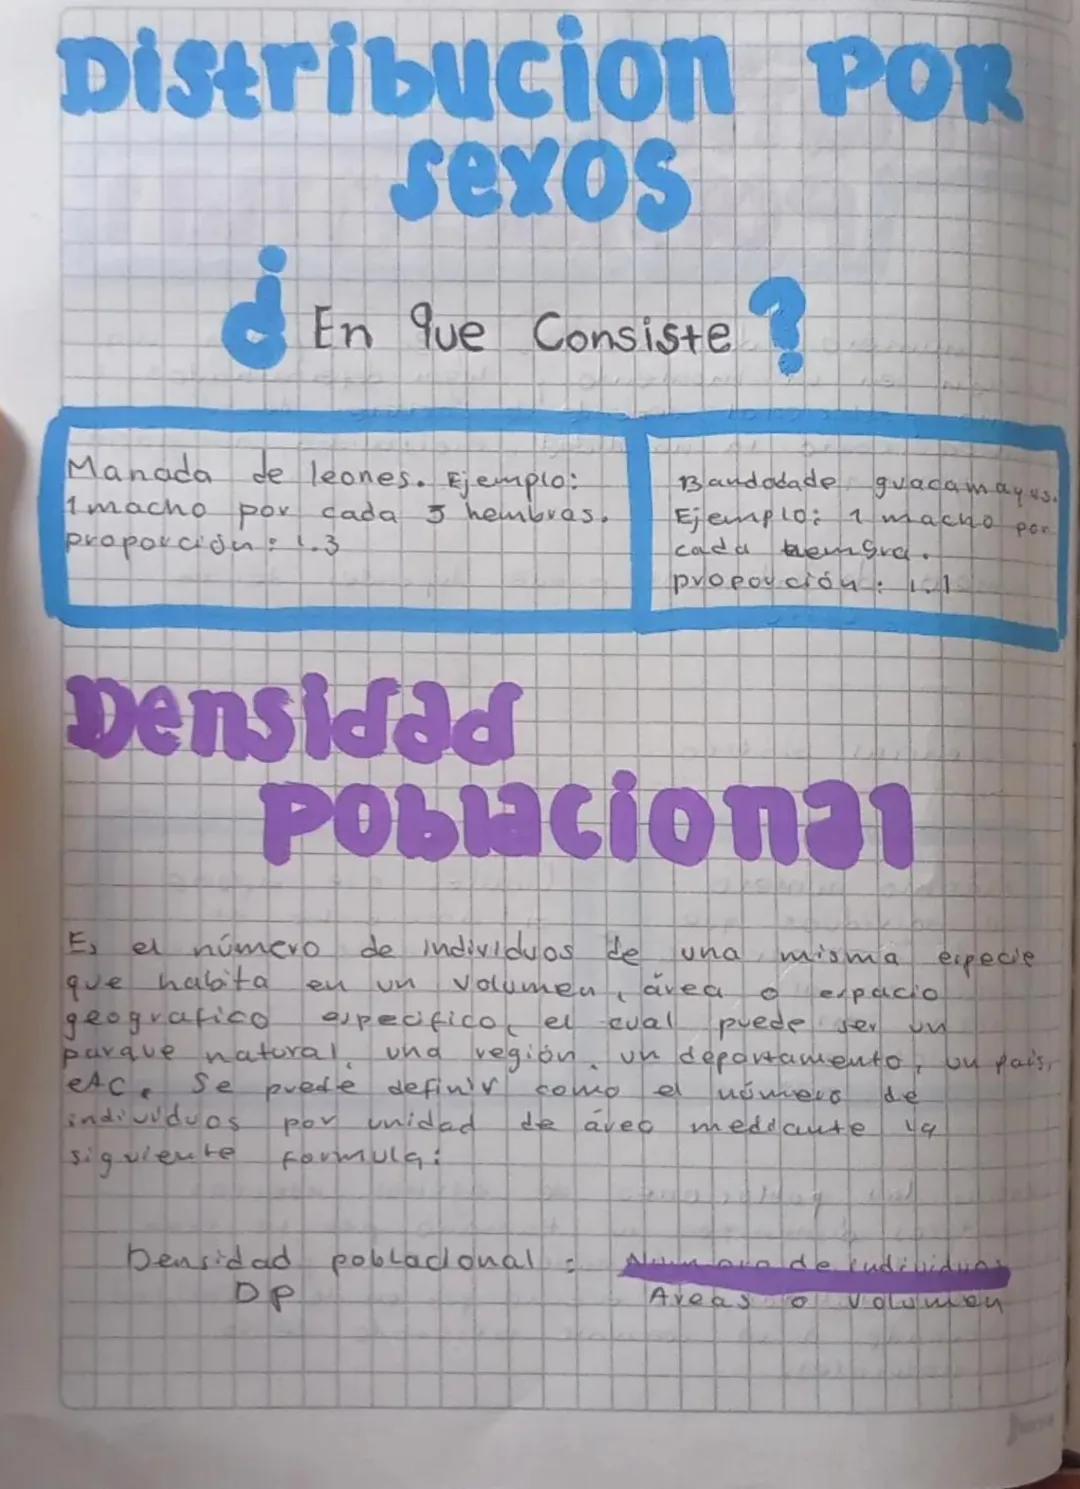 Distribucion POR
sexos
¿En que Consiste?
Manada de leones. Ejemplo:
1 macho por cada 3 hembras.
proporción: 1.3
Bandadade guacamayas.
Ejemplo: 1 macho por
cada hembra.
proporción: 1.1
Densidad
Poblacional
Es el número de individuos de una misma especie
que habita en un volumen, área o espacio
geografico especifico, el cual puede ser un
parque natural, una región, un departamento, un pais,
etc. Se puede definir como el número de
individuos por unidad de área mediante la
siguiente formula:
Densidad poblacional : Numero de individuos
DP Areas o volumen